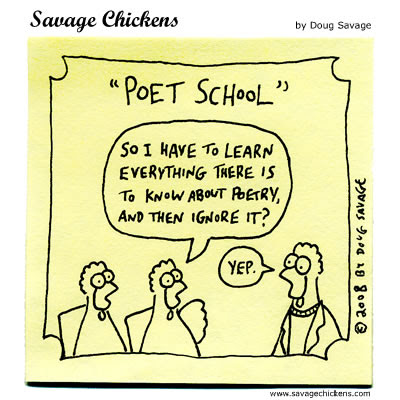 Savage Chickens
by Doug Savage
"POET SCHOOL"
SO I HAVE TO LEARN
EVERYTHING THERE IS
TO KNOW ABOUT POETRY,
AND THEN IGNORE IT?
YEP.
© 2008 BY DOUG SAVAGE
www.savagechickens.com